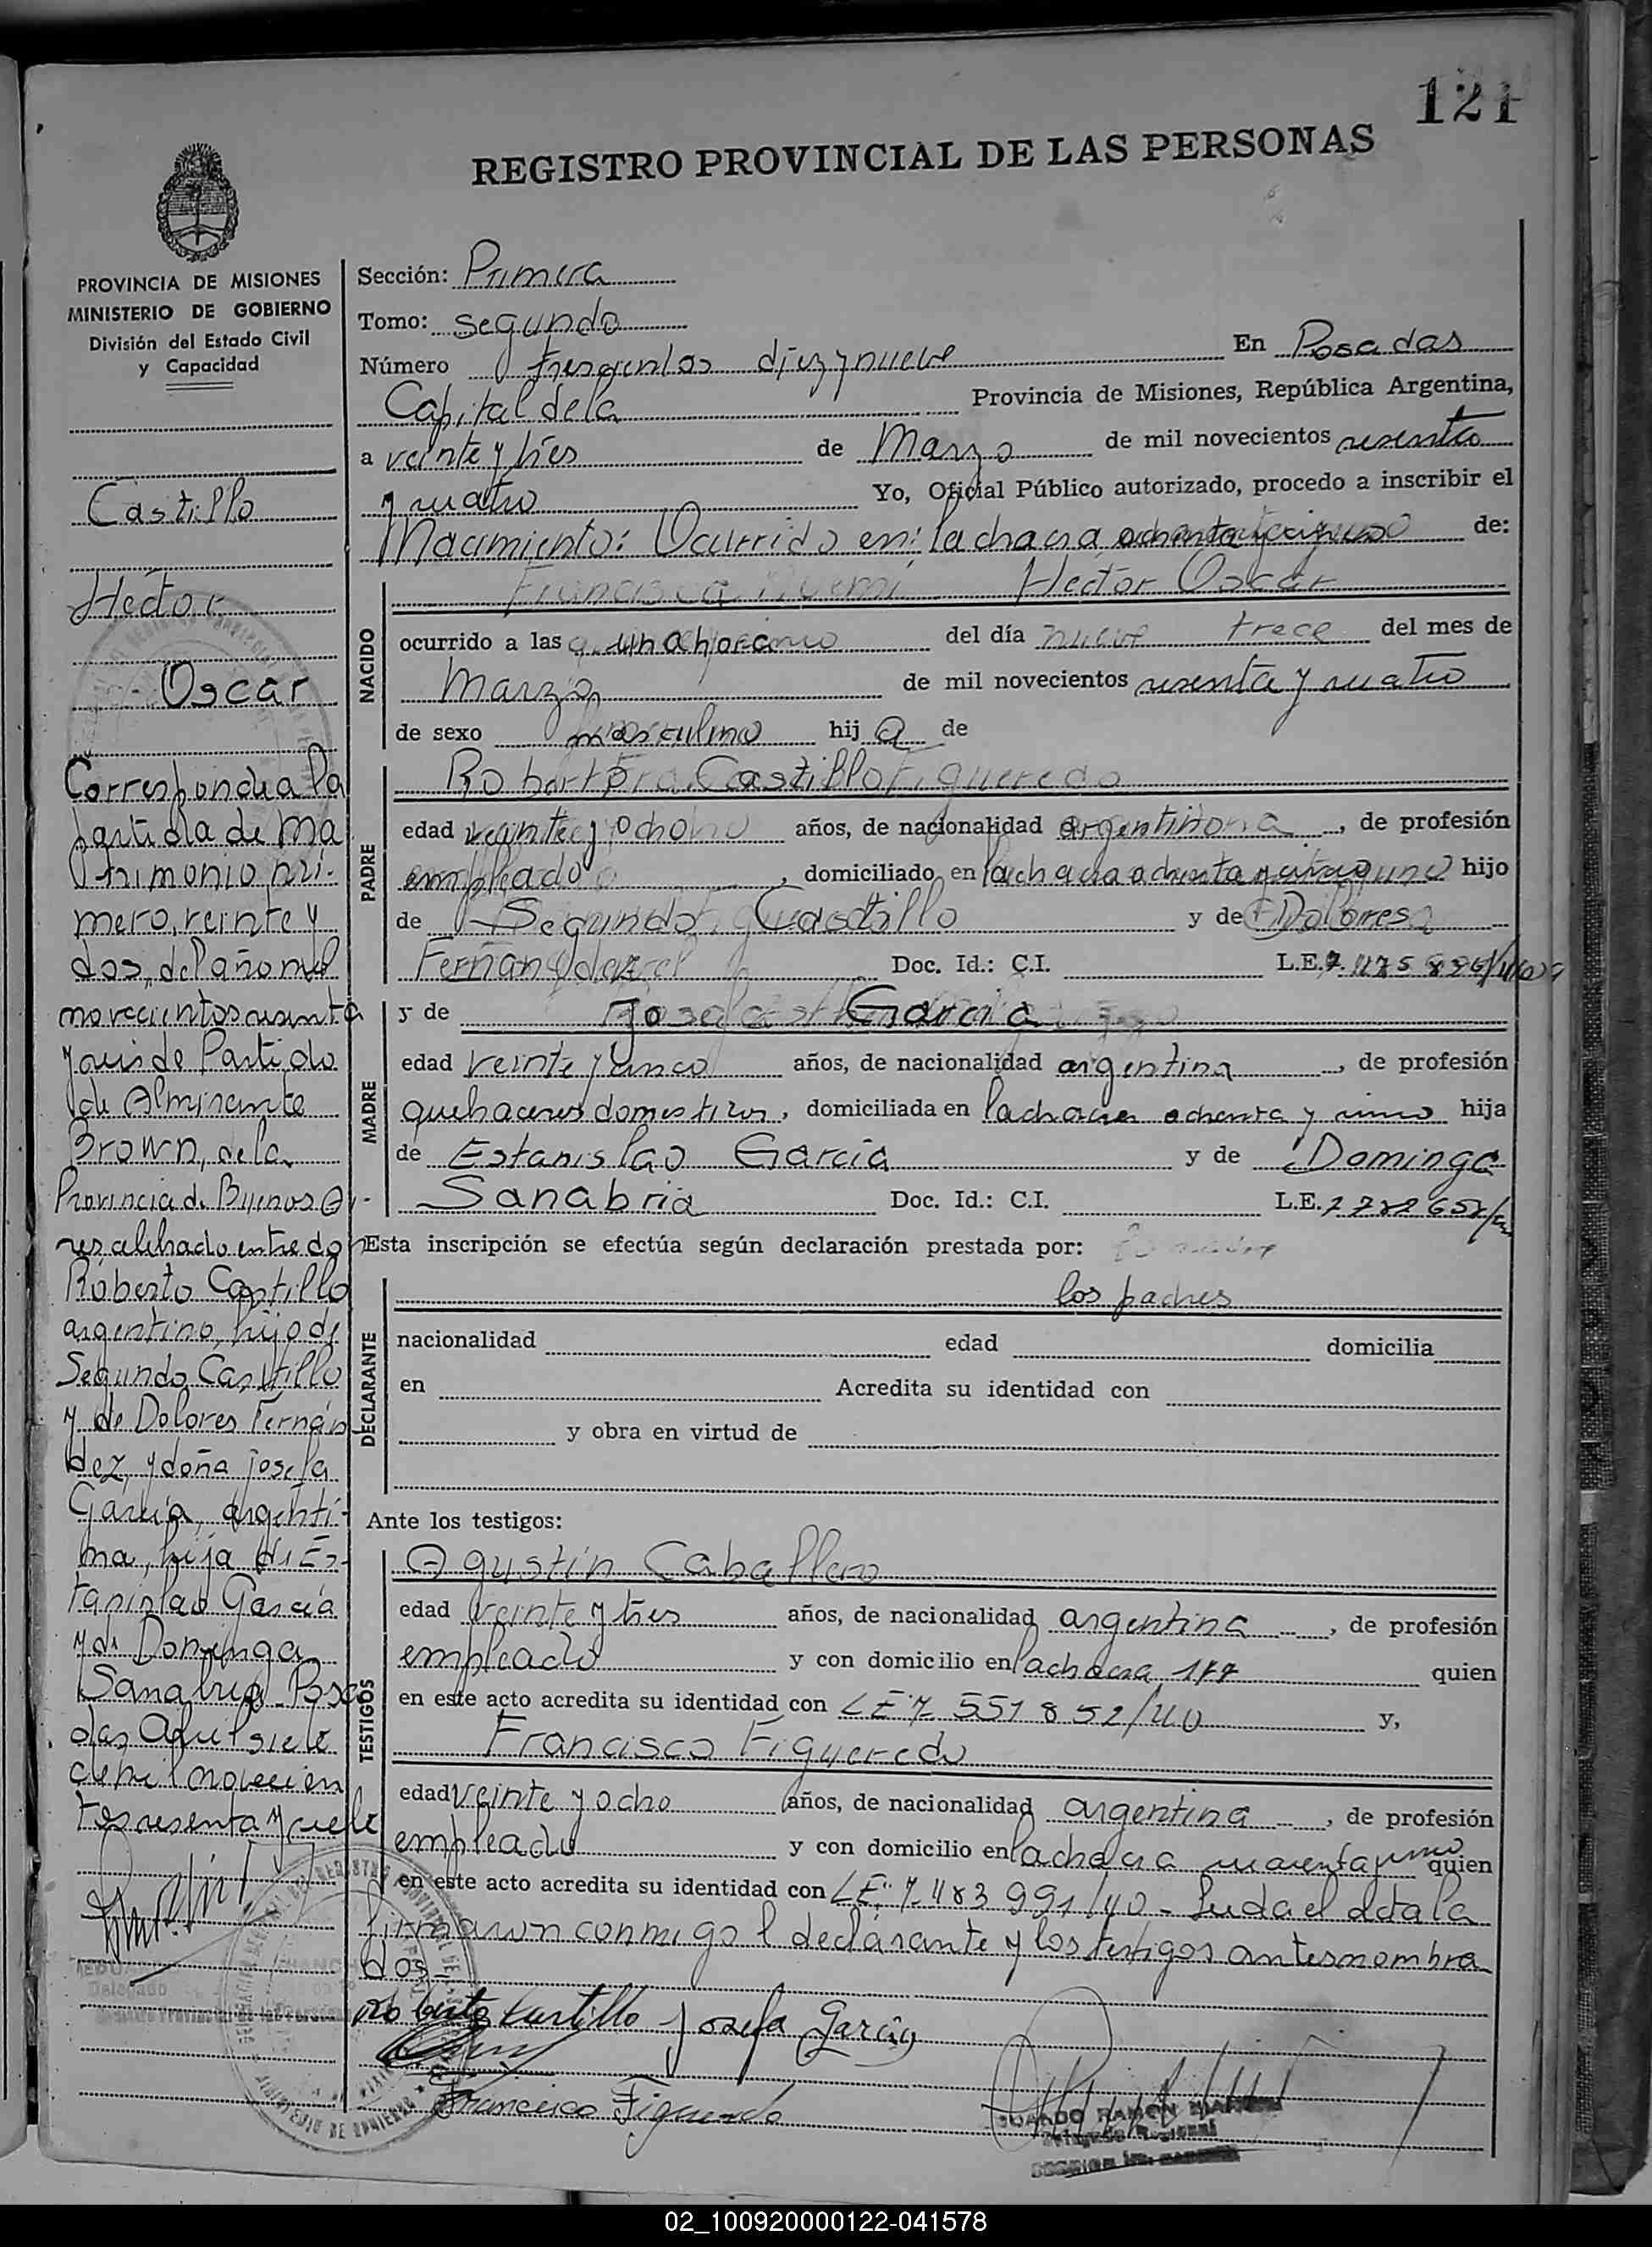 121
REGISTRO PROVINCIAL DE LAS PERSONAS
PROVINCIA DE MISIONES
MINISTERIO DE GOBIERNO
División del Estado Civil
y Capacidad
Castillo
Hector
Oscar
Corresponde a la
partida de ma
trimonio nú-
mero, veinte y
dos, del año mil
novecientos sesenta
y seis de Partido
de Almirante
Brown, de la
Provincia de Buenos Ai-
res celebrado entre don
Roberto Castillo
argentino, hijo de
Segundo Castillo
y de Dolores Fernán
dez, y doña Josefa
García, argenti-
na, hija de Es-
tanislao García
y de Dominga
Sanabria. Posa
das Abril siete
de mil novecien
tos sesenta y siete
Sección: Primera
Tomo: segundo
Número trescientos diez y nueve En Posadas
Capital de la Provincia de Misiones, República Argentina,
a veinte y tres de Marzo de mil novecientos sesenta
y cuatro Yo, Oficial Público autorizado, procedo a inscribir el
Nacimiento: Ocurrido en: la chacra ochenta y uno de:
Hector Oscar
NACIDO
ocurrido a las una hora del día trece del mes de
Marzo de mil novecientos sesenta y cuatro
de sexo masculino hij o de
PADRE
Roberto Castillo
edad veinte y ocho años, de nacionalidad argentina, de profesión
empleado, domiciliado en la chacra ochenta y uno hijo
de Segundo Castillo y de Dolores
Fernandez Doc. Id.: C.I. L.E.
MADRE
y de Josefa Garcia
edad veinte y cinco años, de nacionalidad argentina, de profesión
quehaceres domesticos, domiciliada en la chacra ochenta y uno hija
de Estanislao Garcia y de Dominga
Sanabria Doc. Id.: C.I. L.E.
Esta inscripción se efectúa según declaración prestada por:
los padres
DECLARANTE
nacionalidad edad domicilia
en Acredita su identidad con
y obra en virtud de
Ante los testigos:
TESTIGOS
Agustín Caballero
edad veinte y tres años, de nacionalidad argentina, de profesión
empleado y con domicilio en la chacra 177 quien
en este acto acredita su identidad con L E 7.551852/40 y,
Francisco Figueredo
edad veinte y ocho años, de nacionalidad argentina, de profesión
empleado y con domicilio en la chacra cuarenta y uno quien
en este acto acredita su identidad con L E: 7.483991/40 - Leida el acta la
firmaron conmigo el declarante y los testigos antes nombra
dos-
Roberto Castillo Josefa Garcia
Francisco Figueredo
02_100920000122-041578